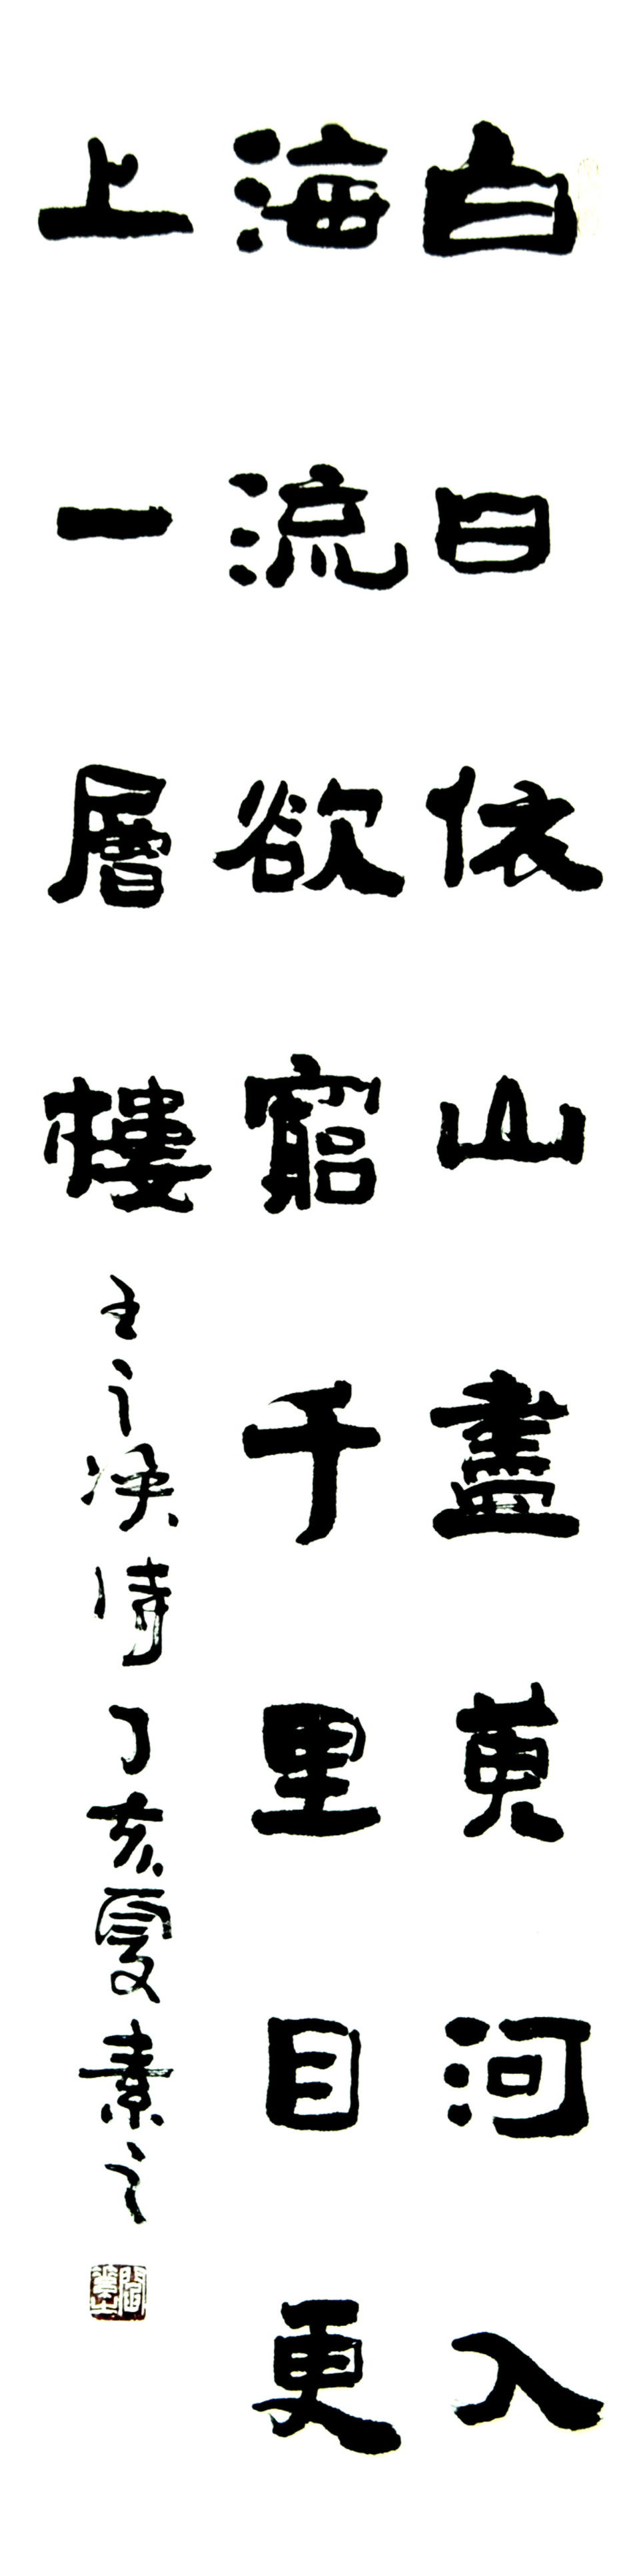 白日依山盡黄河入
海流欲窮千里目更
上一層樓
王之渙詩丁亥夏素之